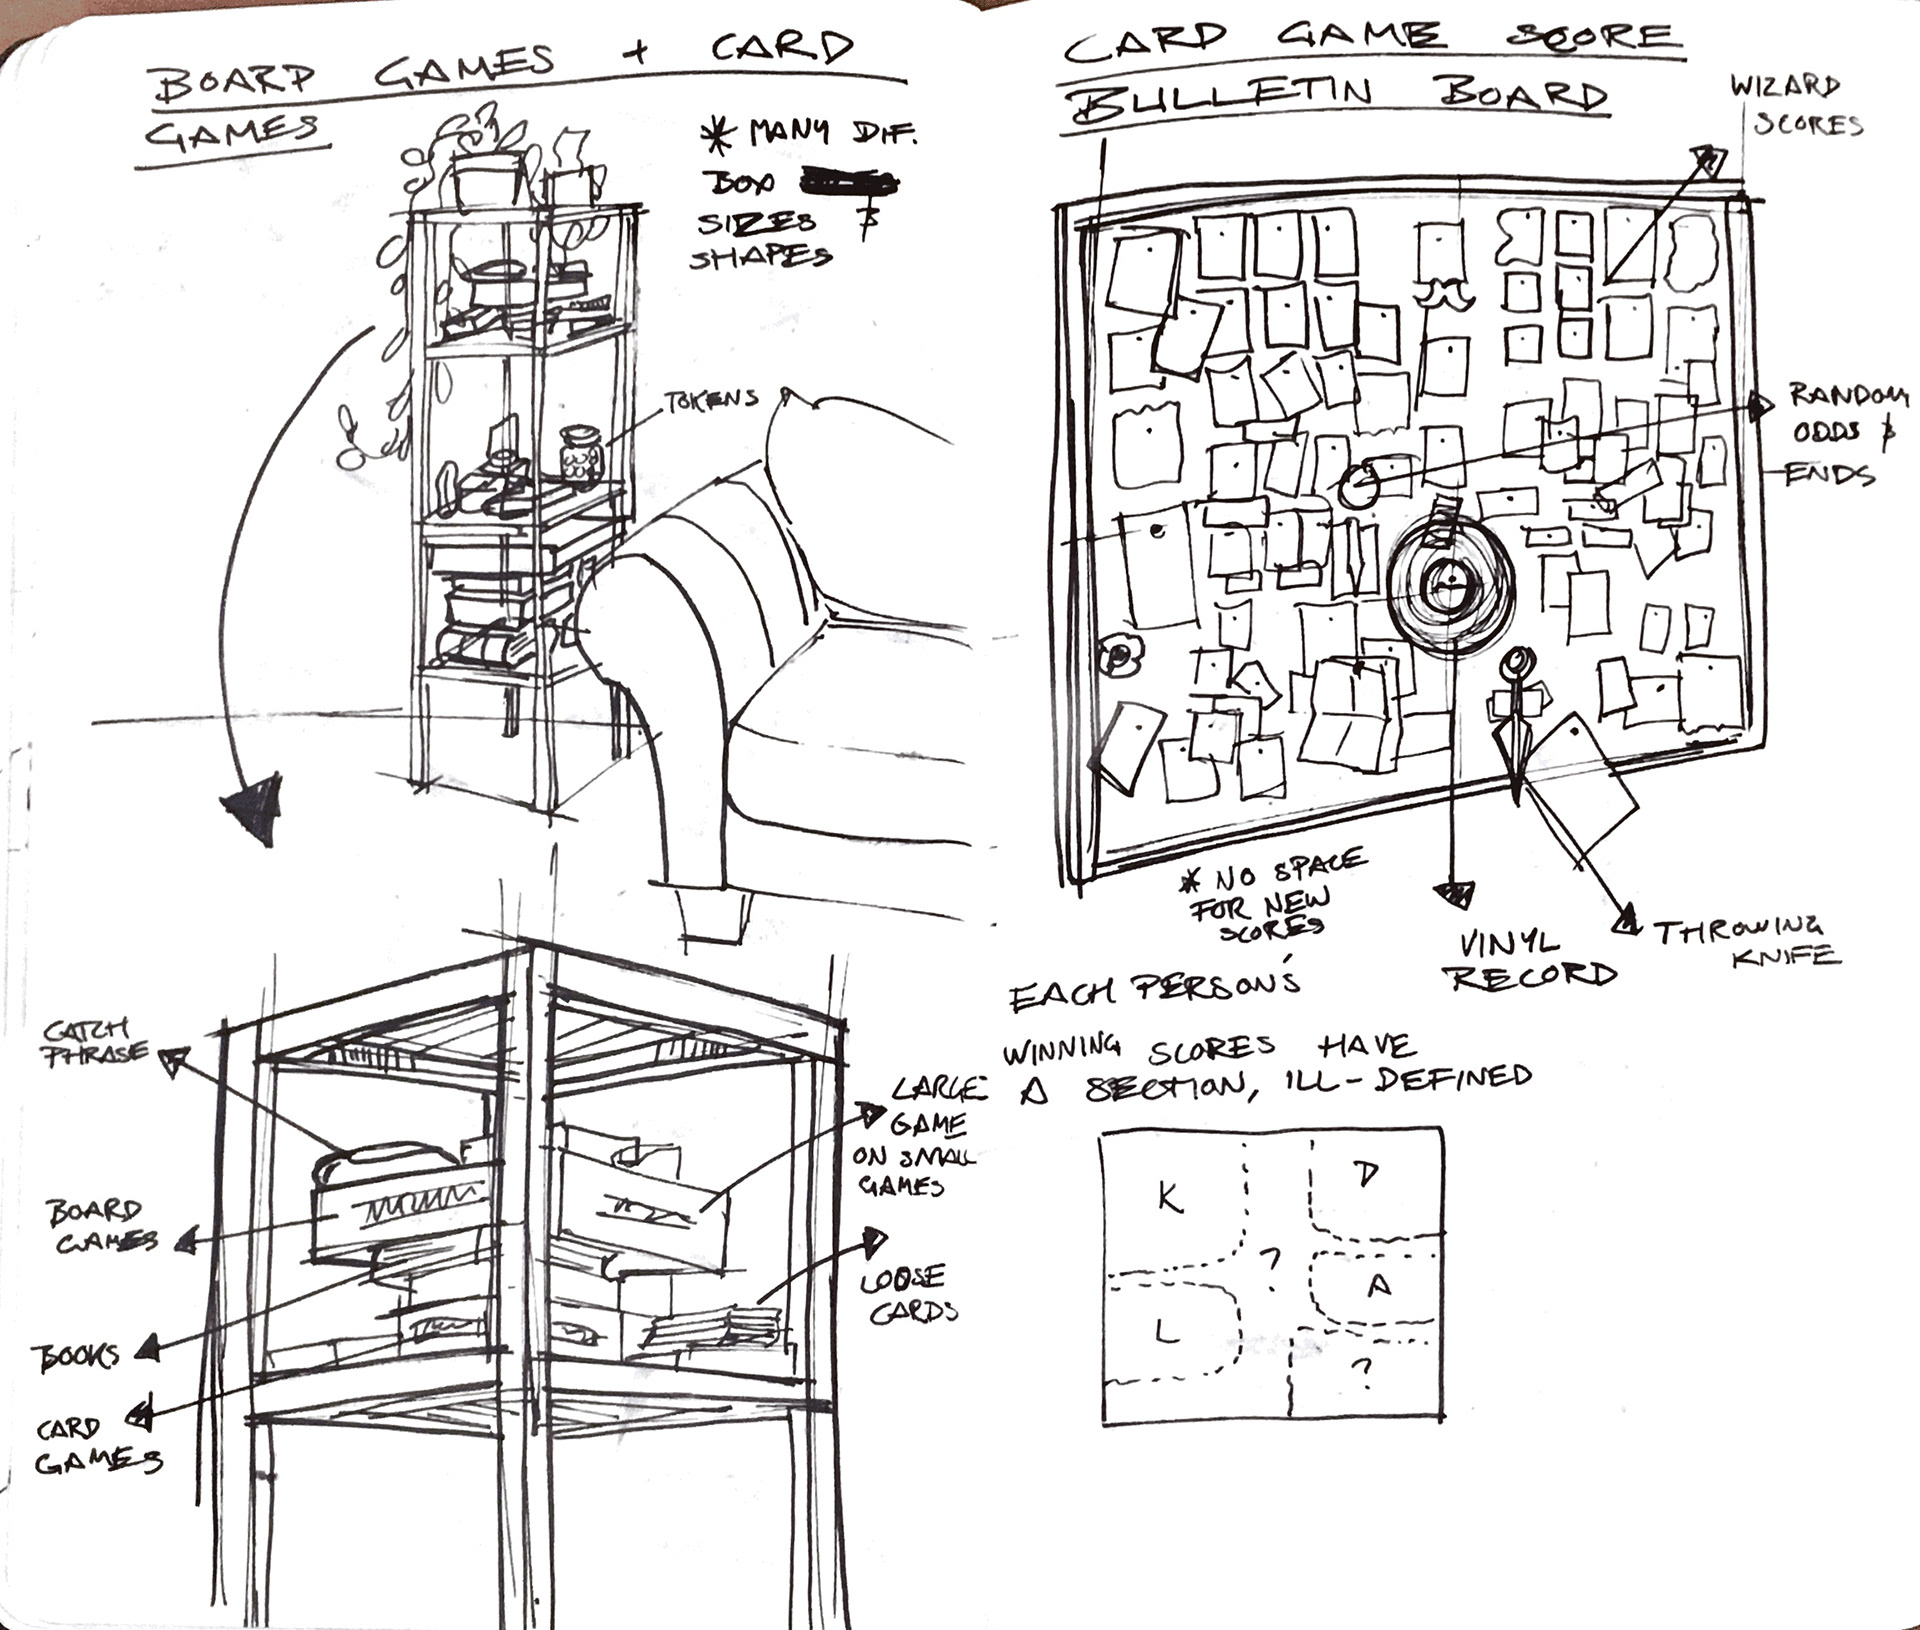 BOARD GAMES + CARD
GAMES
* MANY DIF.
BOX
SIZES &
SHAPES
TOKENS
CATCH
PHRASE
BOARD
GAMES
BOOKS
CARD
GAMES
LARGE
GAME
ON SMALL
GAMES
LOOSE
CARDS
CARD GAME SCORE
BULLETIN BOARD
WIZARD
SCORES
RANDOM
ODDS &
ENDS
* NO SPACE
FOR NEW
SCORES
VINYL
RECORD
THROWING
KNIFE
EACH PERSON'S
WINNING SCORES HAVE
A SECTION, ILL-DEFINED
K
D
?
A
L
?